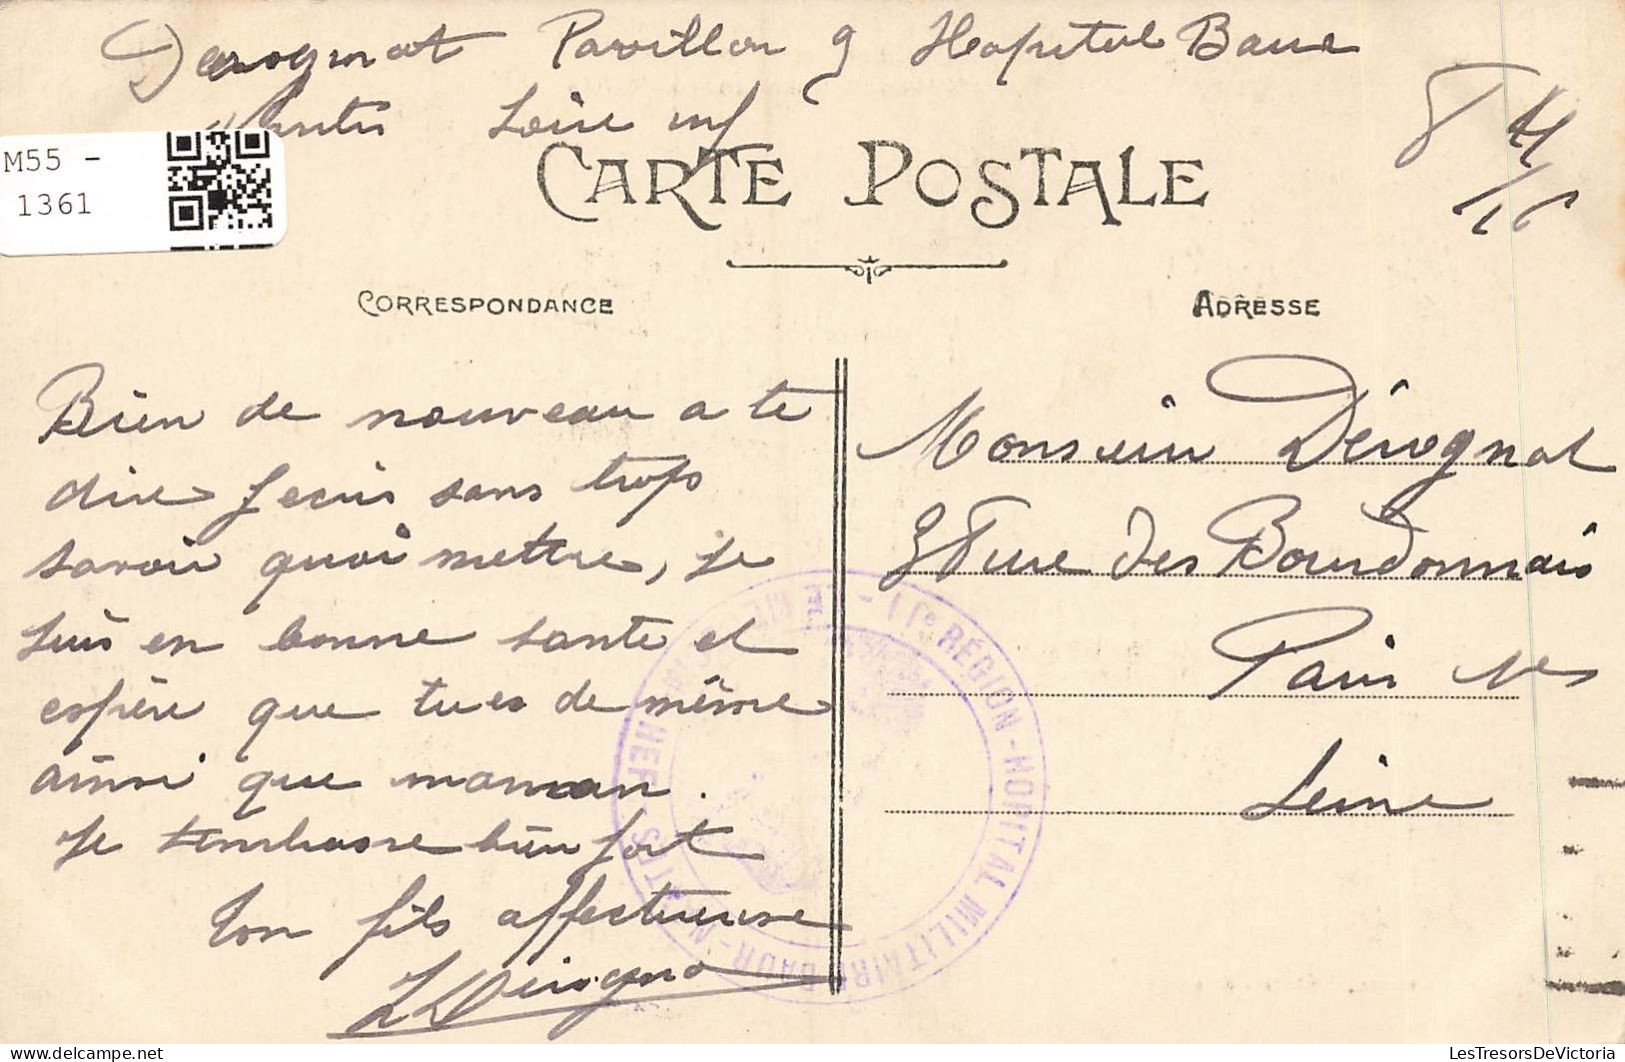 Derognat Pavillon 9 Hopital Baur
Nantes Loire inf
M55 -
1361
CARTE POSTALE
CORRESPONDANCE
ADRESSE
Bien de nouveau a te
dire Jecris sans trop
savoir quoi mettre, je
suis en bonne sante et
espère que tu es de même
ainsi que maman.
Je tembrasse bien fort
Ton fils affectueuse
Monsieur Dérognat
rue des Bourdonnais
Paris
Seine
11e RÉGION - HOPITAL MILITAIRE BAUR -
LesTresorsDeVictoria